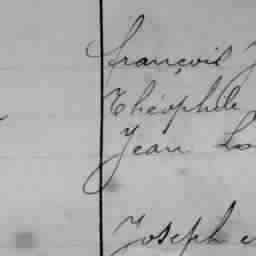 françois
Théophile
Jean
Joseph